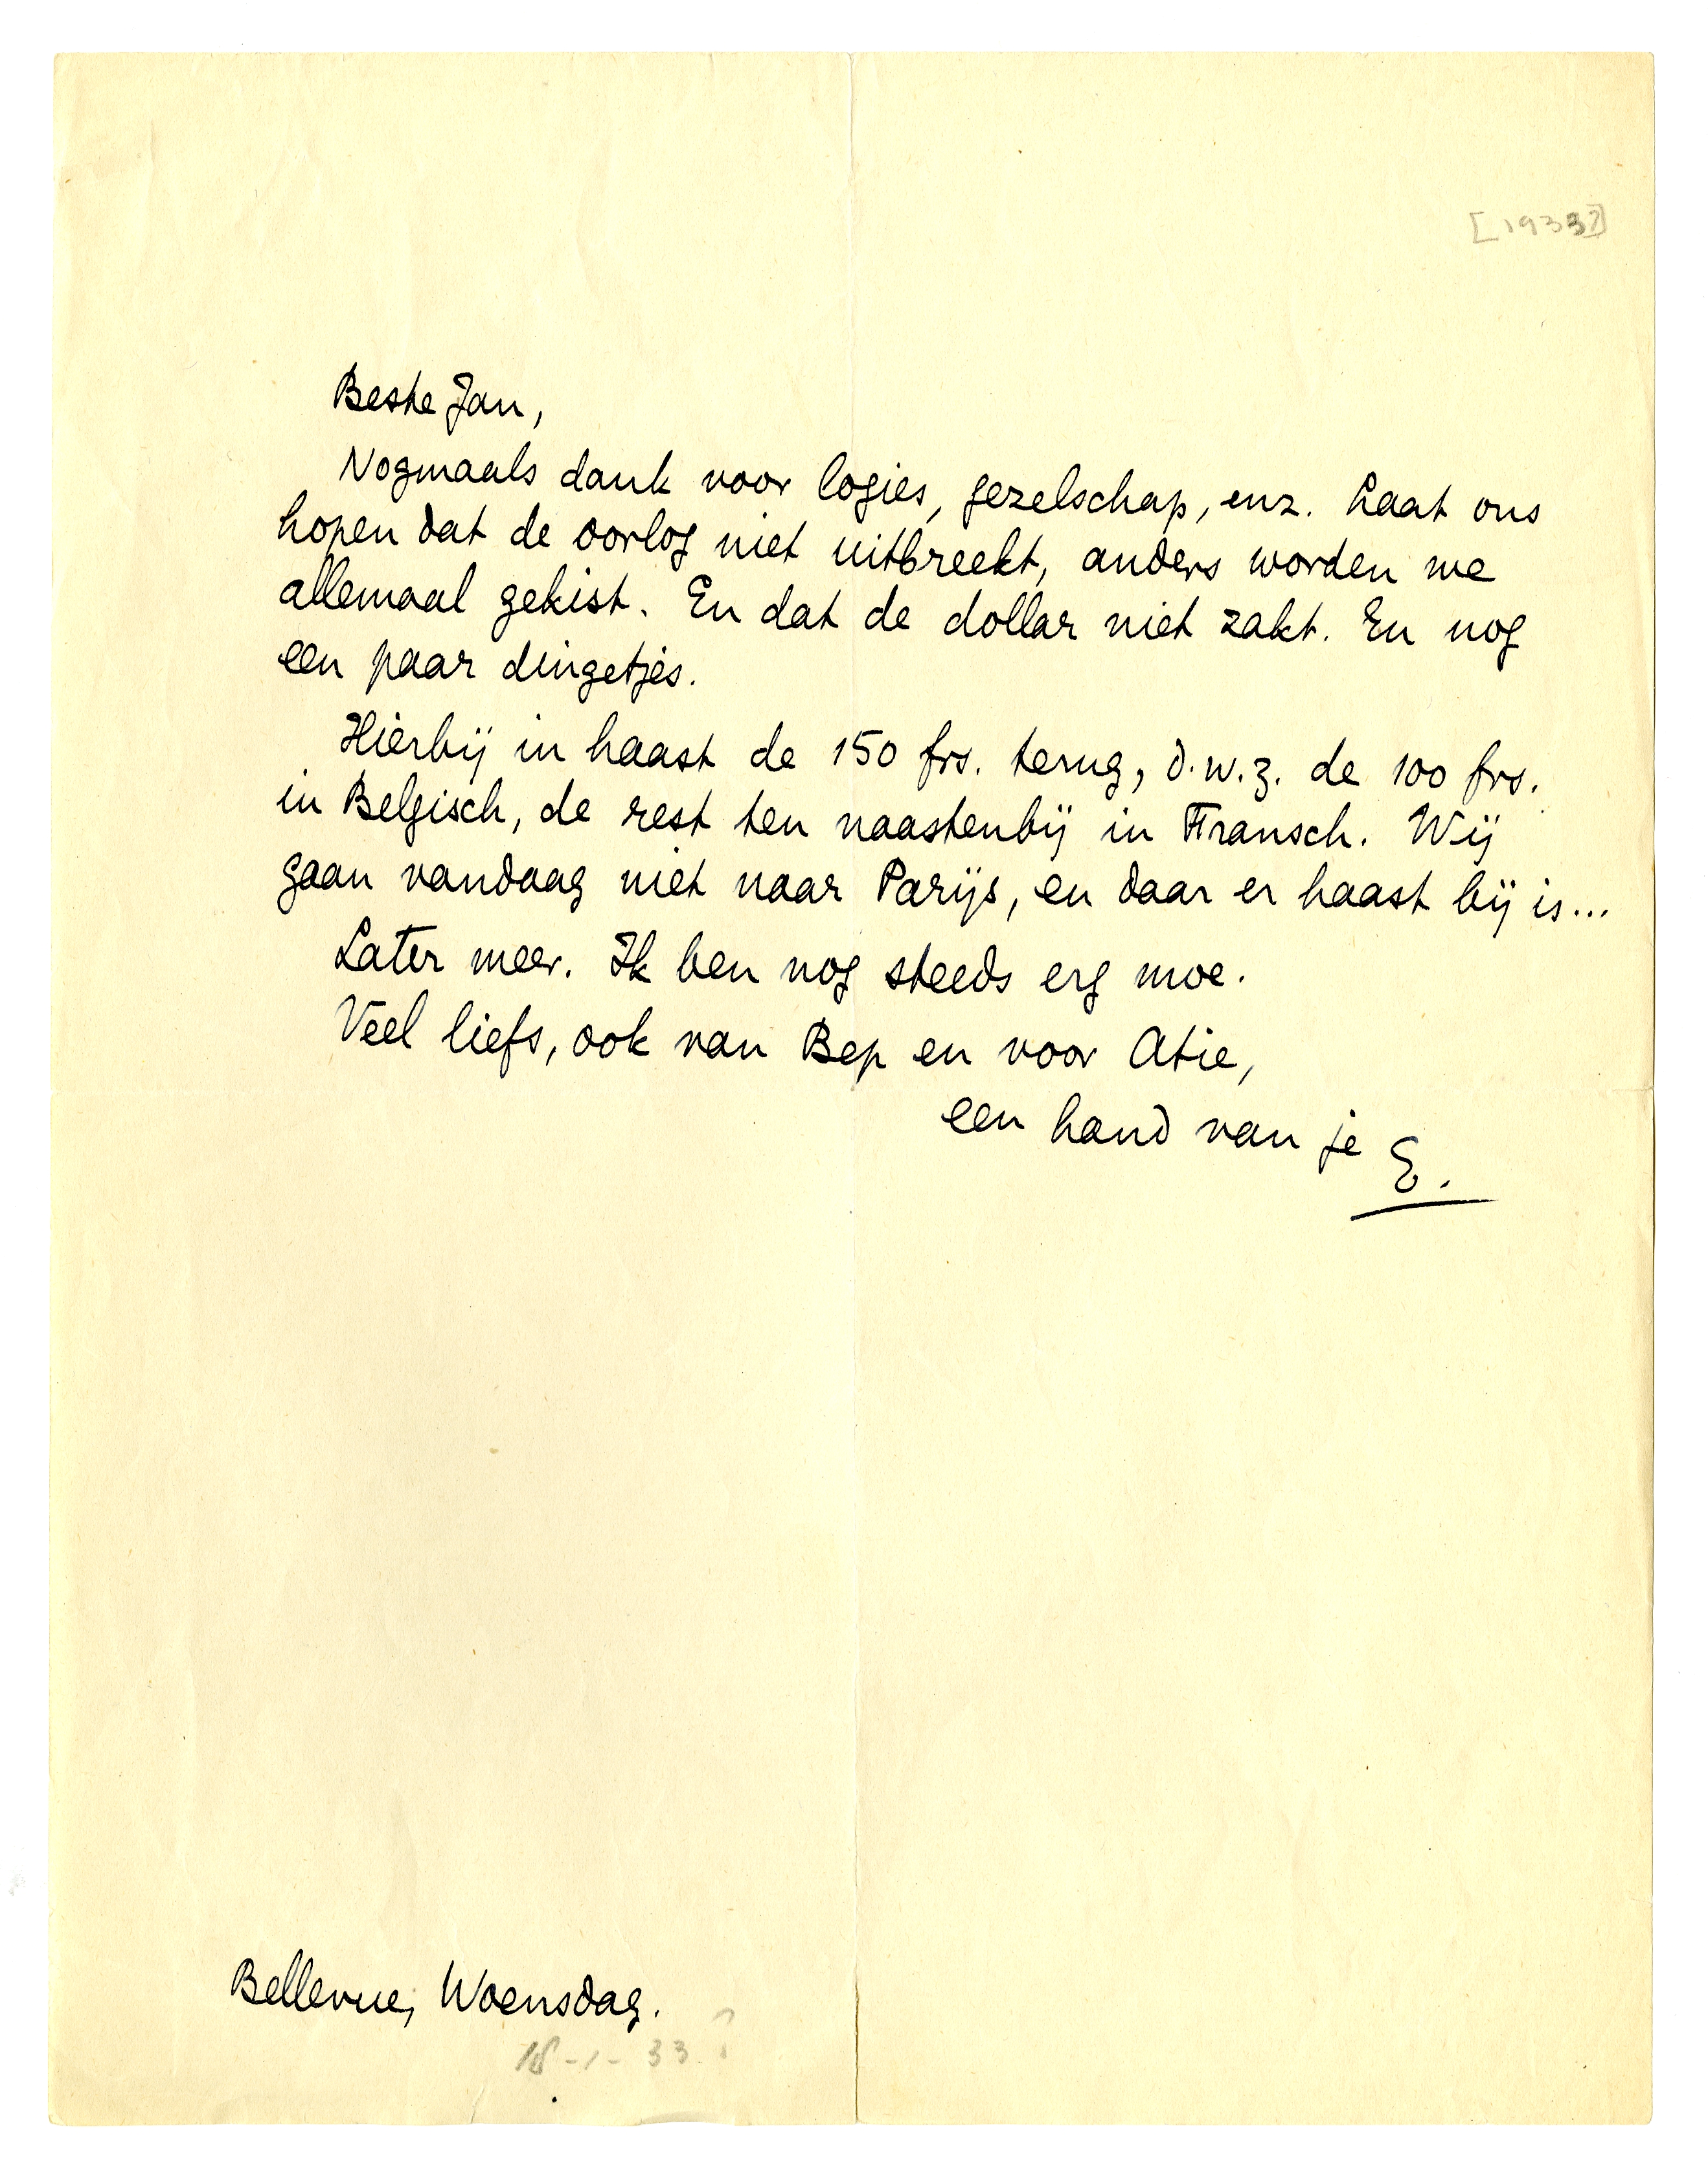 [1933?]
Beste Jan,
Nogmaals dank voor logies, gezelschap, enz. Laat ons
hopen dat de oorlog niet uitbreekt, anders worden we
allemaal gekist. En dat de dollar niet zakt. En nog
een paar dingetjes.
Hierbij in haast de 150 frs. terug, d.w.z. de 100 frs.
in Belgisch, de rest ten naastenbij in Fransch. Wij
gaan vandaag niet naar Parijs, en daar er haast bij is...
Later meer. Ik ben nog steeds erg moe.
Veel liefs, ook van Bep en voor Atie,
een hand van je E.
Bellevue, Woensdag.
18-1-33?